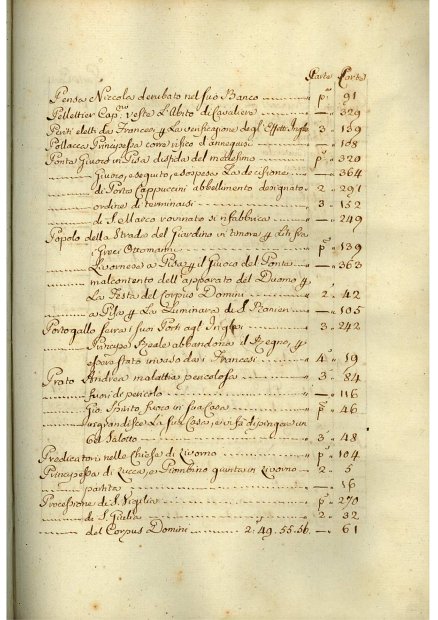 Parte Carte
Pensa Niccola derubato nel suo Banco pa 91
Pelletier Capno veste l'Abito di Cavaliere — 329
Periti eletti da Francesi p La verificazione degl' Effetti Inglesi 3 139
Pollacca Principessa corre rischio d'annegarsi — 108
Ponte Giuoco in Pisa disfida del medesimo pa 320
Giuoco, eseguito, e sospesa La decisione — 364
di Porto Cappuccini abbellimento designato 2 291
ordine di terminarsi 3 152
di S. Marco rovinato si rifabbrica — 249
Popolo della Strada del Giardino in timore p
Greci Ottomanni pa 139
Livornese a Pisa p il Giuoco del Ponte — 363
malcontento dell'apparato del Duomo p
La Festa del Corpus Domini 2 42
a Pisa p La Luminara di S. Ranieri — 105
Portogallo serra i suoi Porti agl' Inglesi 3 242
Principe Reale abbandona il Regno, p
essere stato invaso dai Francesi 4 19
Prato Andrea malattia pericolosa 3 84
fuori di pericolo — 116
Gio. Spirito fuoco in sua Casa pa 46
ingrandisce La sua Casa, e vi fa dipingere un
bel Salotto 3 48
Predicatori nelle Chiese di Livorno pa 104
Principessa di Lucca, e Piombino giunta in Livorno 2 5
partita — 16
Processione di S. Vigilia pa 270
di S. Giulia 2 32
del Corpus Domini 2. 49. 55. 56. — 61